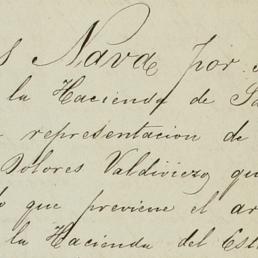 Nava por
la Hacienda de
representacion de
Dolores Valdiviezo
que previene el
la Hacienda del